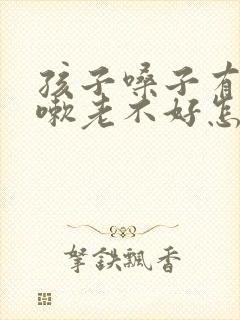 孩子嗓子有
嗽老不好怎
拏鉄飄香